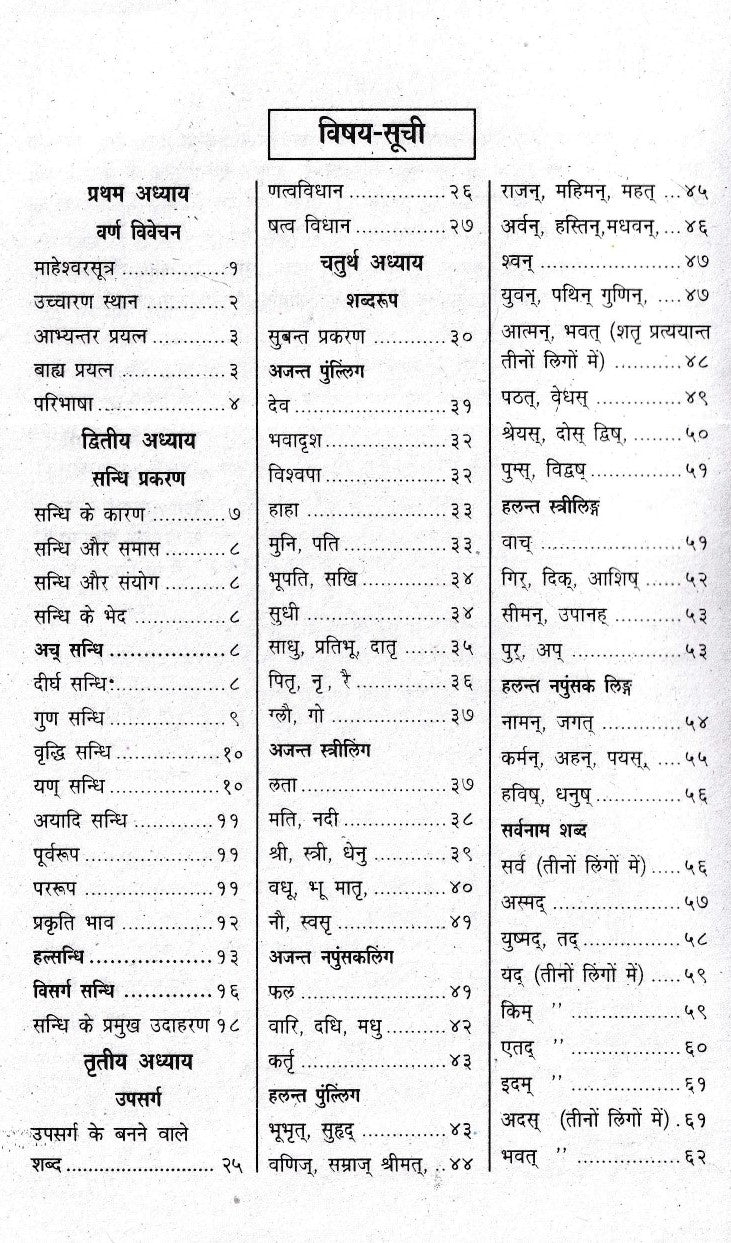 विषय-सूची
प्रथम अध्याय
वर्ण विवेचन
माहेश्वरसूत्र ..............१
उच्चारण स्थान ...........२
आभ्यन्तर प्रयत्न .........३
बाह्य प्रयत्न ..............३
परिभाषा ..................४
द्वितीय अध्याय
सन्धि प्रकरण
सन्धि के कारण ..........७
सन्धि और समास ........८
सन्धि और संयोग ........८
सन्धि के भेद .............८
अच् सन्धि ................८
दीर्घ सन्धि ...............८
गुण सन्धि ................९
वृद्धि सन्धि ..............१०
यण् सन्धि ...............१०
अयादि सन्धि ...........११
पूर्वरूप ..................११
पररूप ...................११
प्रकृति भाव .............१२
हल्सन्धि .................१३
विसर्ग सन्धि ............१६
सन्धि के प्रमुख उदाहरण १८
तृतीय अध्याय
उपसर्ग
उपसर्ग के बनने वाले
शब्द ........................... २५
णत्वविधान ................२६
षत्व विधान ...............२७
चतुर्थ अध्याय
शब्दरूप
सुबन्त प्रकरण ............३०
अजन्त पुंल्लिंग
देव ..........................३१
भवादृश ....................३२
विश्वपा .....................३२
हाहा ........................३३
मुनि, पति ..................३३
भूपति, सखि ..............३४
सुधी ........................३४
साधु, प्रतिभू, दातृ .......३५
पितृ, नृ, रै .................३६
ग्लौ, गो ....................३७
अजन्त स्त्रीलिंग
लता .........................३७
मति, नदी ..................३८
श्री, स्त्री, धेनु .............३९
वधू, भू मातृ, .............४०
नौ, स्वसृ ...................४१
अजन्त नपुंसकलिंग
फल .........................४१
वारि, दधि, मधु ...........४२
कर्तृ .........................४३
हलन्त पुंल्लिंग
भूभृत्, सुहृद् ..............४३
वणिज्, सम्राज् श्रीमत्, ..४४
राजन्, महिमन्, महत् ...४५
अर्वन्, हस्तिन्,मधवन्, ...४६
श्वन् ........................४७
युवन्, पथिन् गुणिन्, ....४७
आत्मन्, भवत् (शतृ प्रत्ययान्त
तीनों लिगों में) ............४८
पठत्, वेधस् ...............४९
श्रेयस्, दोस् द्विष्, ........५०
पुम्स्, विद्वष् ...............५१
हलन्त स्त्रीलिङ्ग
वाच् ........................५१
गिर्, दिक्, आशिष् .......५२
सीमन्, उपानह् ...........५३
पुर्, अप् ....................५३
हलन्त नपुंसक लिङ्ग
नामन्, जगत् ..............५४
कर्मन्, अहन्, पयस्, ....५५
हविष्, धनुष् ...............५६
सर्वनाम शब्द
सर्व (तीनों लिंगों में) .....५६
अस्मद् .....................५७
युष्मद्, तद् .................५८
यद् (तीनों लिंगों में) .....५९
किम् ’’ ....................५९
एतद् ’’ ....................६०
इदम् ’’ ....................६१
अदस् (तीनों लिंगों में) .६१
भवत् ’’ ...................६२